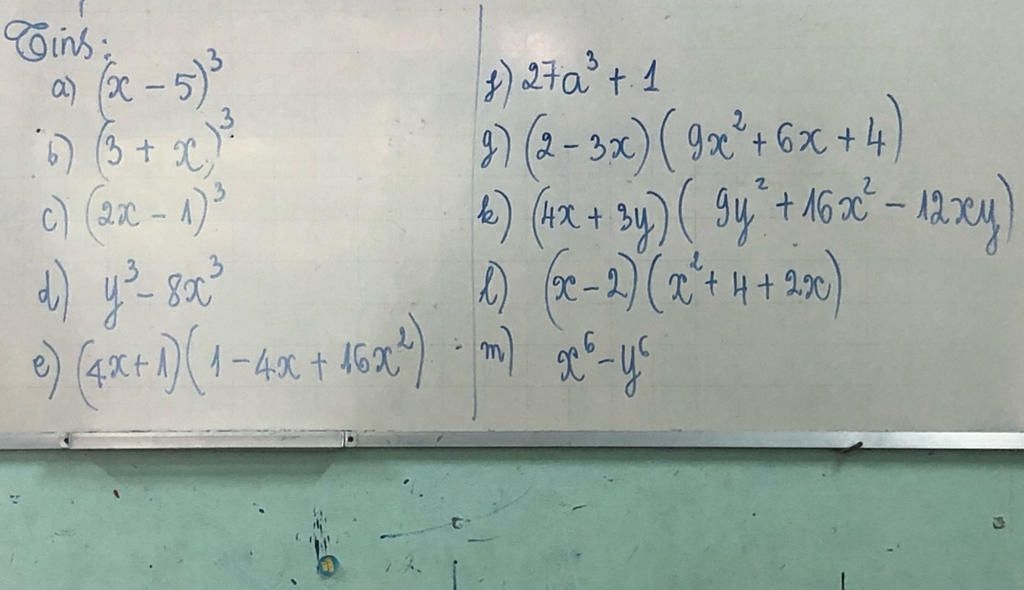 Tính:
a) (x - 5)³
b) (3 + x)³
c) (2x - 1)³
d) y³ - 8x³
e) (4x+1)(1 - 4x + 16x²)
f) 27a³ + 1
g) (2 - 3x)(9x² + 6x + 4)
k) (4x + 3y)(9y² + 16x² - 12xy)
l) (x - 2)(x² + 4 + 2x)
m) x⁶ - y⁶